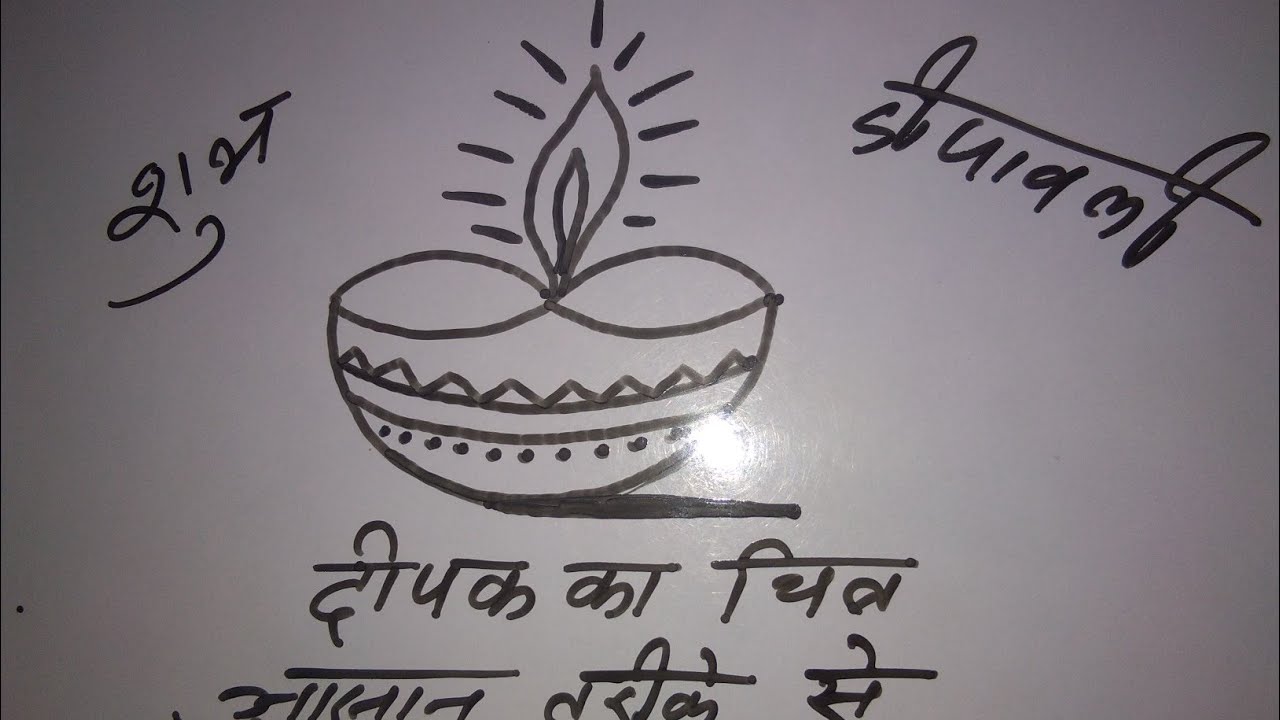 शुभ
दीपावली
दीपक का चित्र
आसान तरीके से